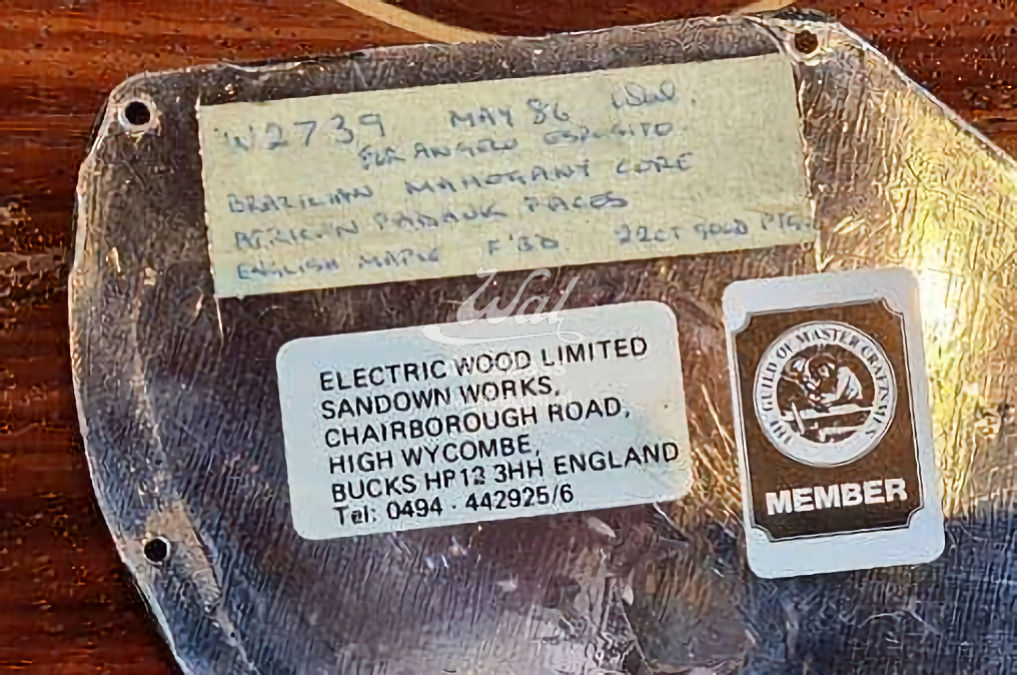 W2739 MAY 86 Wal.
FOR ANGELO ESPOSITO.
BRAZILIAN MAHOGANY CORE
AFRICAN PADAUK FACES
ENGLISH MAPLE F'BD 22CT GOLD PTG.
Wal
ELECTRIC WOOD LIMITED
SANDOWN WORKS,
CHAIRBOROUGH ROAD,
HIGH WYCOMBE,
BUCKS HP12 3HH ENGLAND
Tel: 0494 - 442925/6
THE GUILD OF MASTER CRAFTSMEN
MEMBER